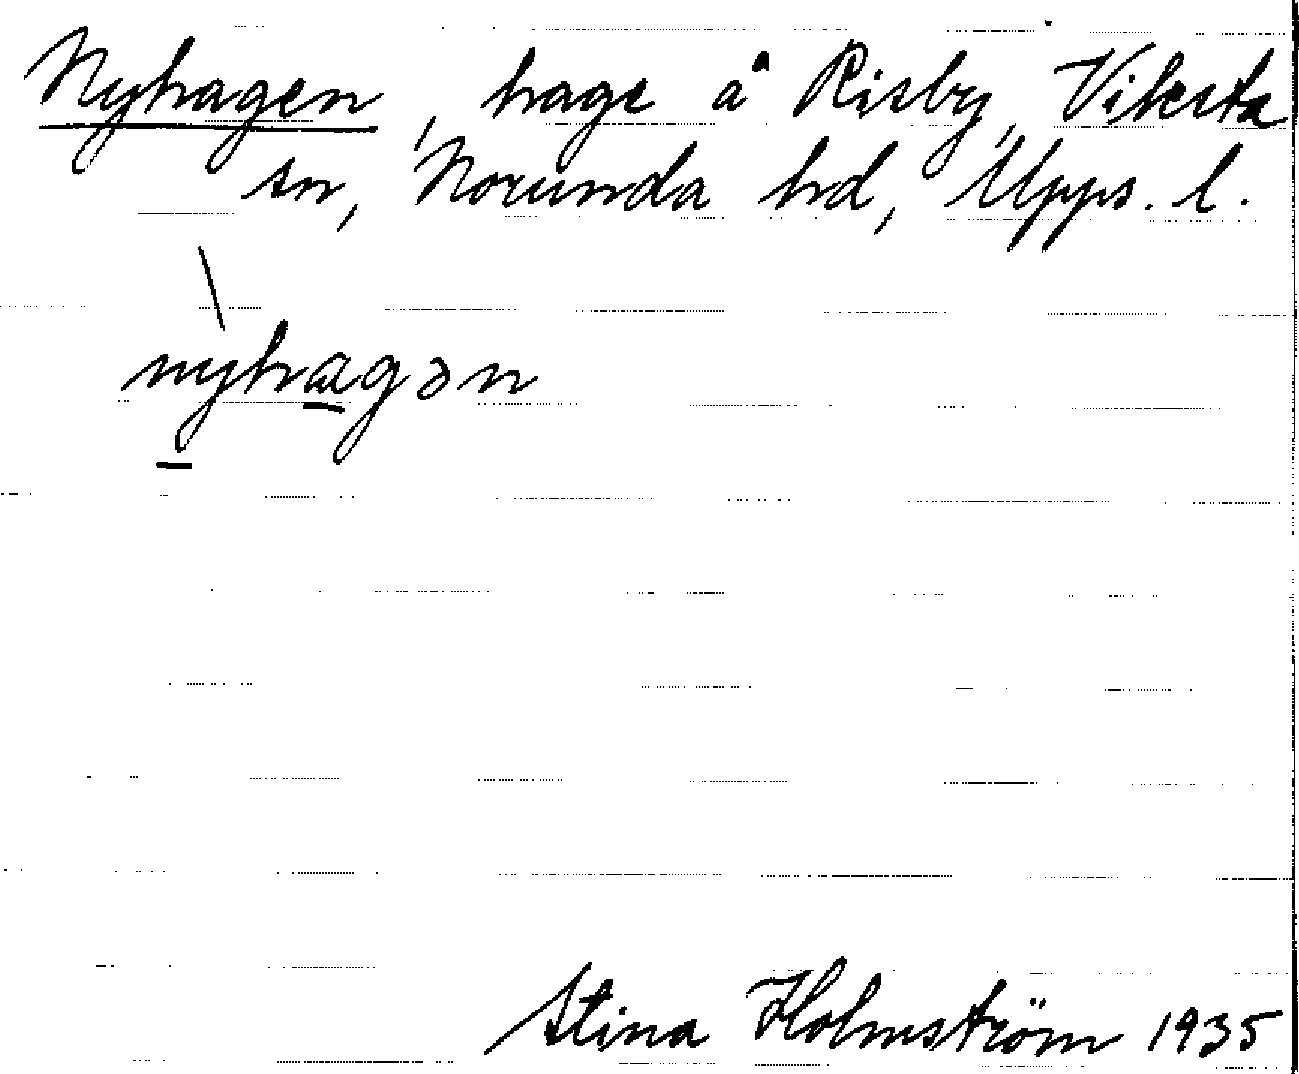 Nyhagen, hage å Risby, Viksta
sn, Norunda hd, Upps. l.
\
nyhagən
Stina Holmström 1935